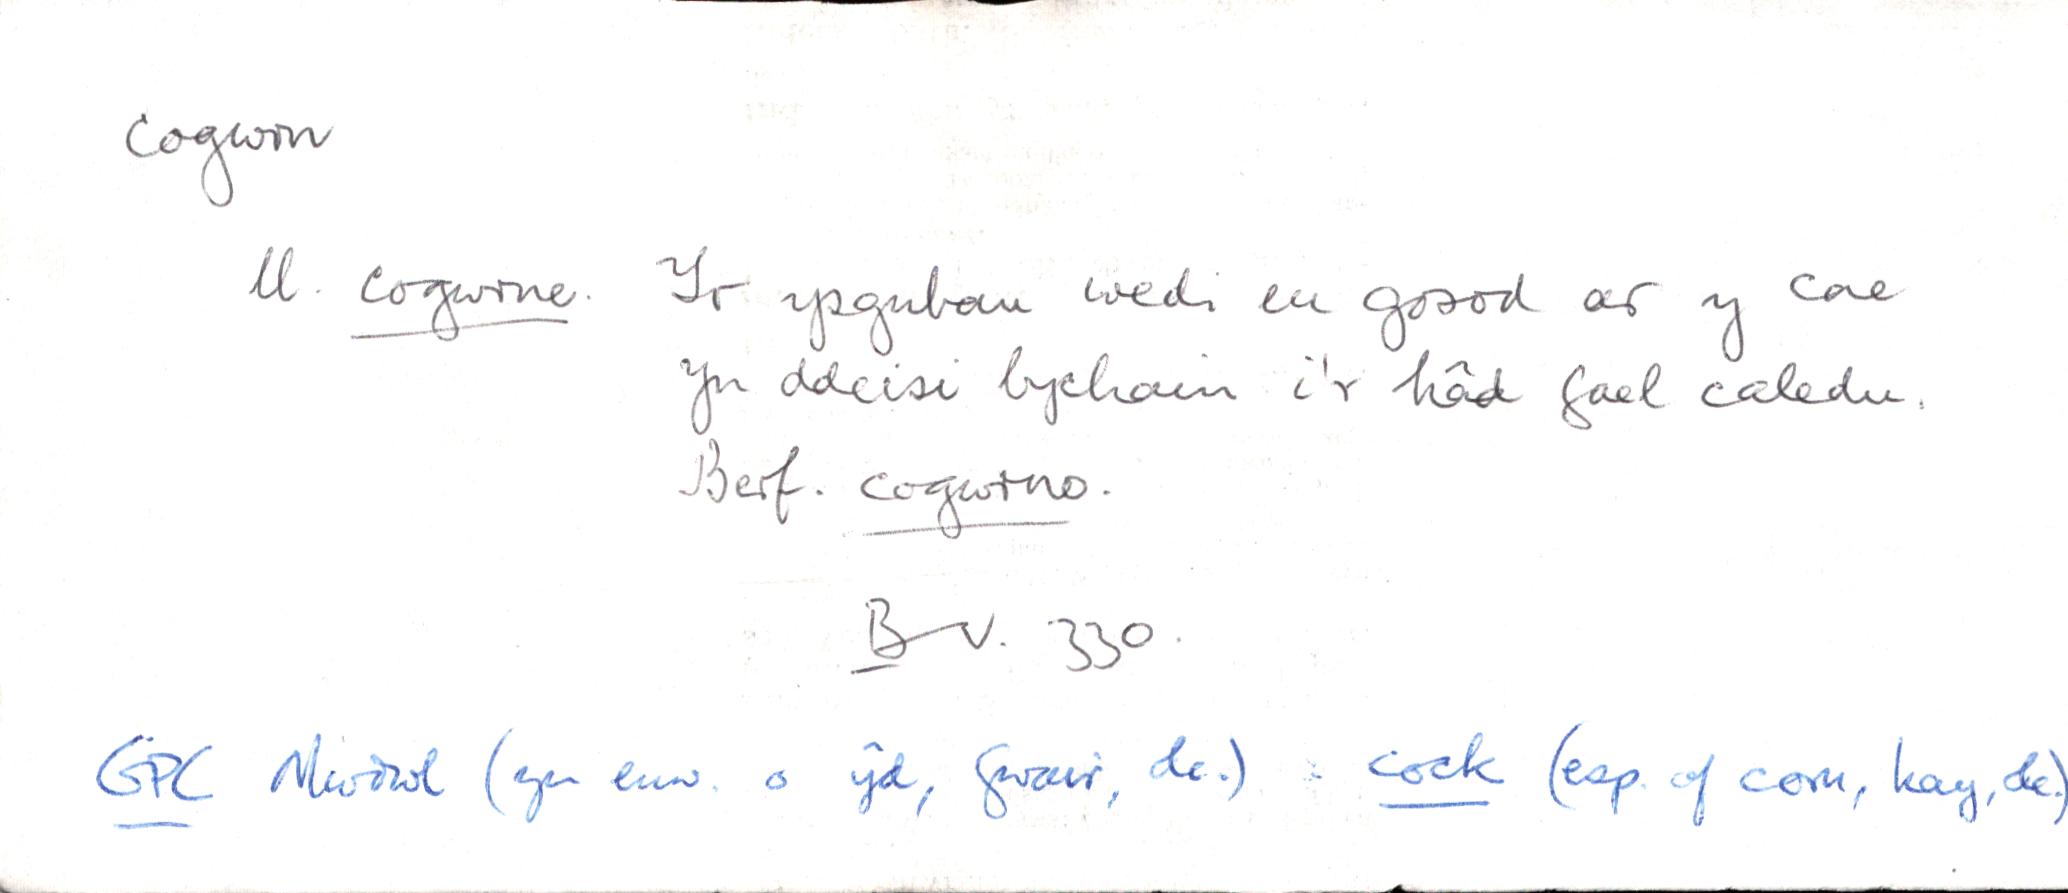 Cogwrn
ll. cogwrne. Yr ysgubau wedi eu gosod ar y cae
yn ddeisi bychain i'r hâd gael caledu.
Berf. cogwrno.
B V. 330.
GPC Mwdwl (yn enw. o ŷd, gwair, &c.) : cock (esp. of corn, hay, &c.)